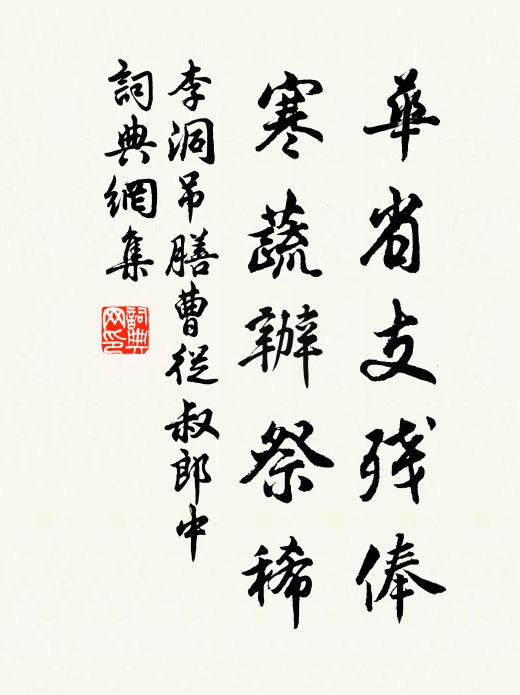 華省支残俸
寒蔬辦祭稀
李洞吊膳曹從叔郎中
詞典網集
詞典網印